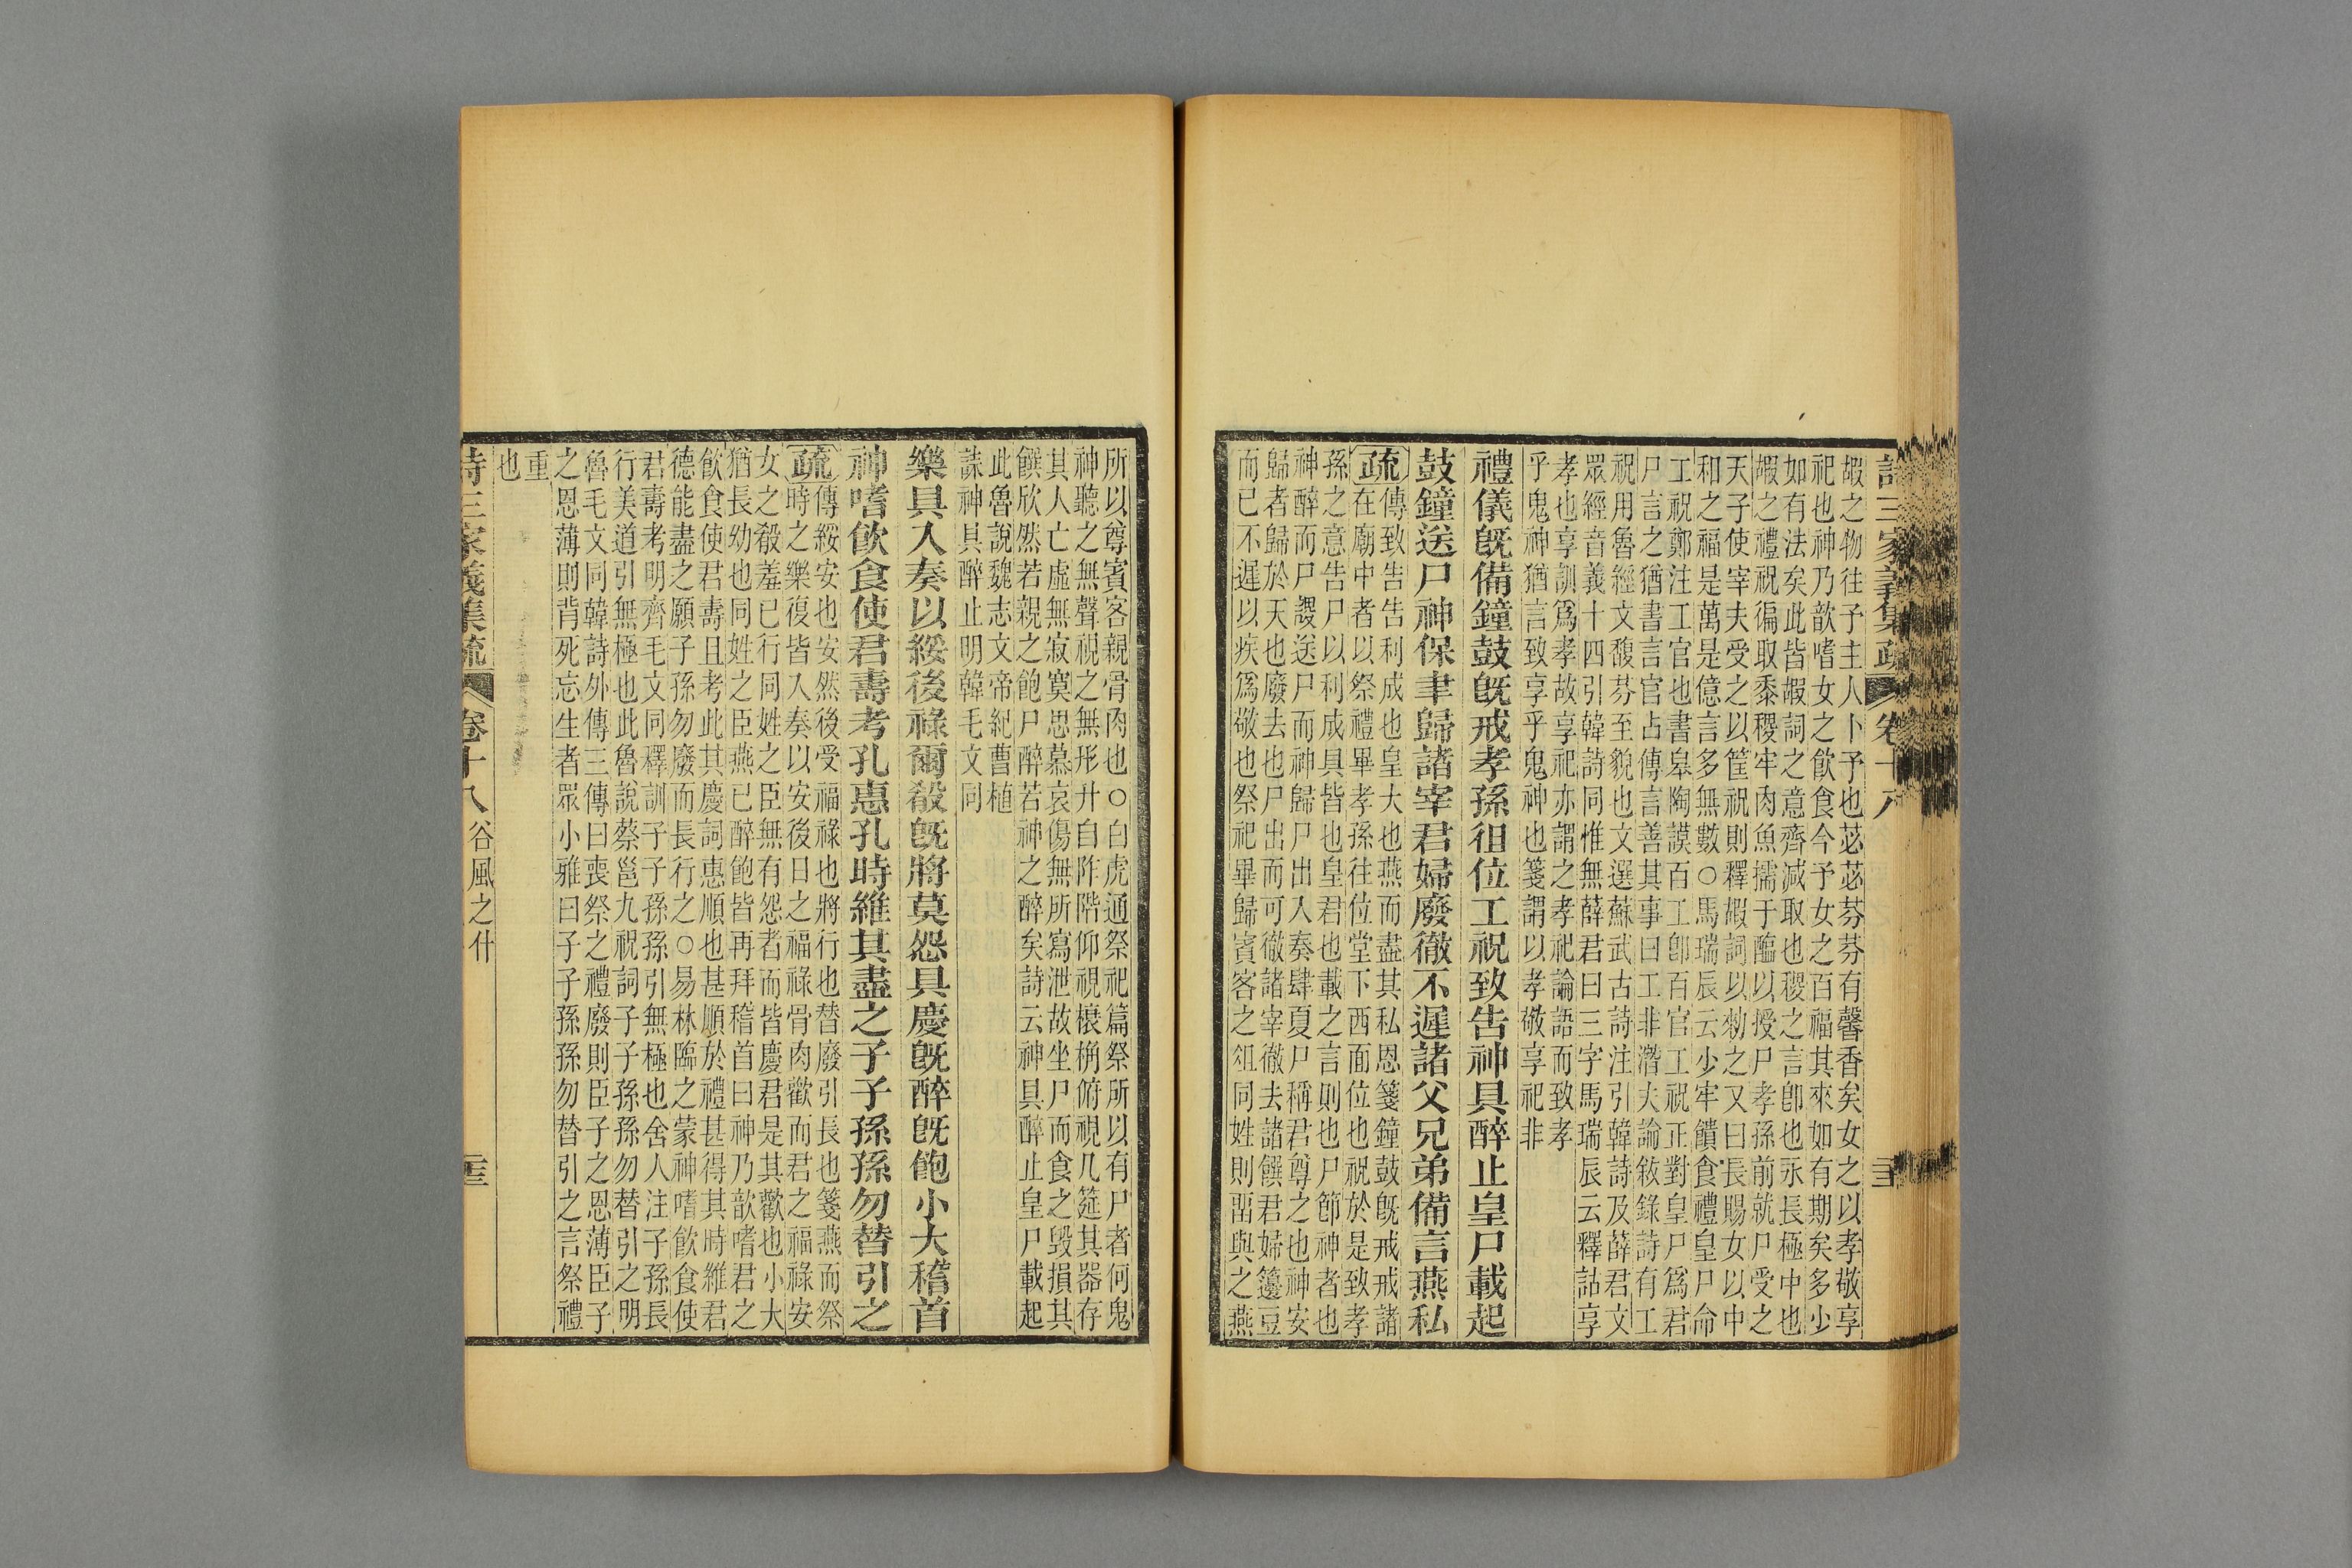 詩三家義集疏 卷十八 二三
嘏之物往予主人卜予也苾苾芬芬有馨香矣女之以孝敬享
祀也神乃歆嗜女之飲食今予女之百福其來如有期矣多少
如有法矣此皆嘏詞之意齊減取也稷之言卽也永長極中也
嘏之禮祝徧取黍稷牢肉魚擩于醢以授尸孝孫前就尸受之
天子使宰夫受之以筐祝則釋嘏詞以勑之又曰長賜女以中
和之福是萬是億言多無數○馬瑞辰云少牢饋食禮皇尸命
工祝鄭注工官也書皋陶謨百工卽百官工祝正對皇尸爲君
尸言之猶書言官占傳言善其事曰工非潛夫論敘錄詩有工
祝用魯經文馥芬至貌也文選蘇武古詩注引韓詩及薛君文
眾經音義十四引韓詩同惟無薛君曰三字馬瑞辰云釋詁享
孝也享訓爲孝故享祀亦謂之孝祀論語而致孝
乎鬼神猶言致享乎鬼神也箋謂以孝敬享祀非
禮儀旣備鐘鼓旣戒孝孫徂位工祝致告神具醉止皇尸載起
鼓鐘送尸神保聿歸諸宰君婦廢徹不遲諸父兄弟備言燕私
疏傳致告告利成也皇大也燕而盡其私恩箋鐘鼓旣戒戒諸
在廟中者以祭禮畢孝孫往位堂下西面位也祝於是致孝
孫之意告尸以利成具皆也皇君也載之言則也尸節神者也
神醉而尸謖送尸而神歸尸出入奏肆夏尸稱君尊之也神安
歸者歸於天也廢去也尸出而可徹諸宰徹去諸饌君婦籩豆
而已不遲以疾爲敬也祭祀畢歸賓客之俎同姓則畱與之燕
所以尊賓客親骨肉也○白虎通祭祀篇祭所以有尸者何鬼
神聽之無聲視之無形升自阼階仰視榱桷俯視几筵其器存
其人亡虛無寂寞思慕哀傷無所寫泄故坐尸而食之毀損其
饌欣然若親之飽尸醉若神之醉矣詩云神具醉止皇尸載起
此魯說魏志文帝紀曹植
誄神具醉止明韓毛文同
樂具入奏以綏後祿爾殽旣將莫怨具慶旣醉旣飽小大稽首
神嗜飲食使君壽考孔惠孔時維其盡之子子孫孫勿替引之
疏傳綏安也安然後受福祿也將行也替廢引長也箋燕而祭
時之樂復皆入奏以安後日之福祿骨肉歡而君之福祿安
女之殽羞已行同姓之臣無有怨者而皆慶君是其歡也小大
猶長幼也同姓之臣燕已醉飽皆再拜稽首曰神乃歆嗜君之
飲食使君壽且考此其慶詞惠順也甚順於禮甚得其時維君
德能盡之願子孫勿廢而長行之○易林臨之蒙神嗜飲食使
君壽考明齊毛文同釋訓子子孫孫引無極也舍人注子孫長
行美道引無極也此魯說蔡邕九祝詞子子孫孫勿替引之明
魯毛文同韓詩外傳三傳曰喪祭之禮廢則臣子之恩薄臣子
之恩薄則背死忘生者眾小雅曰子子孫孫勿替引之言祭禮
重
也
詩三家義集疏 卷十八 谷風之什 二三